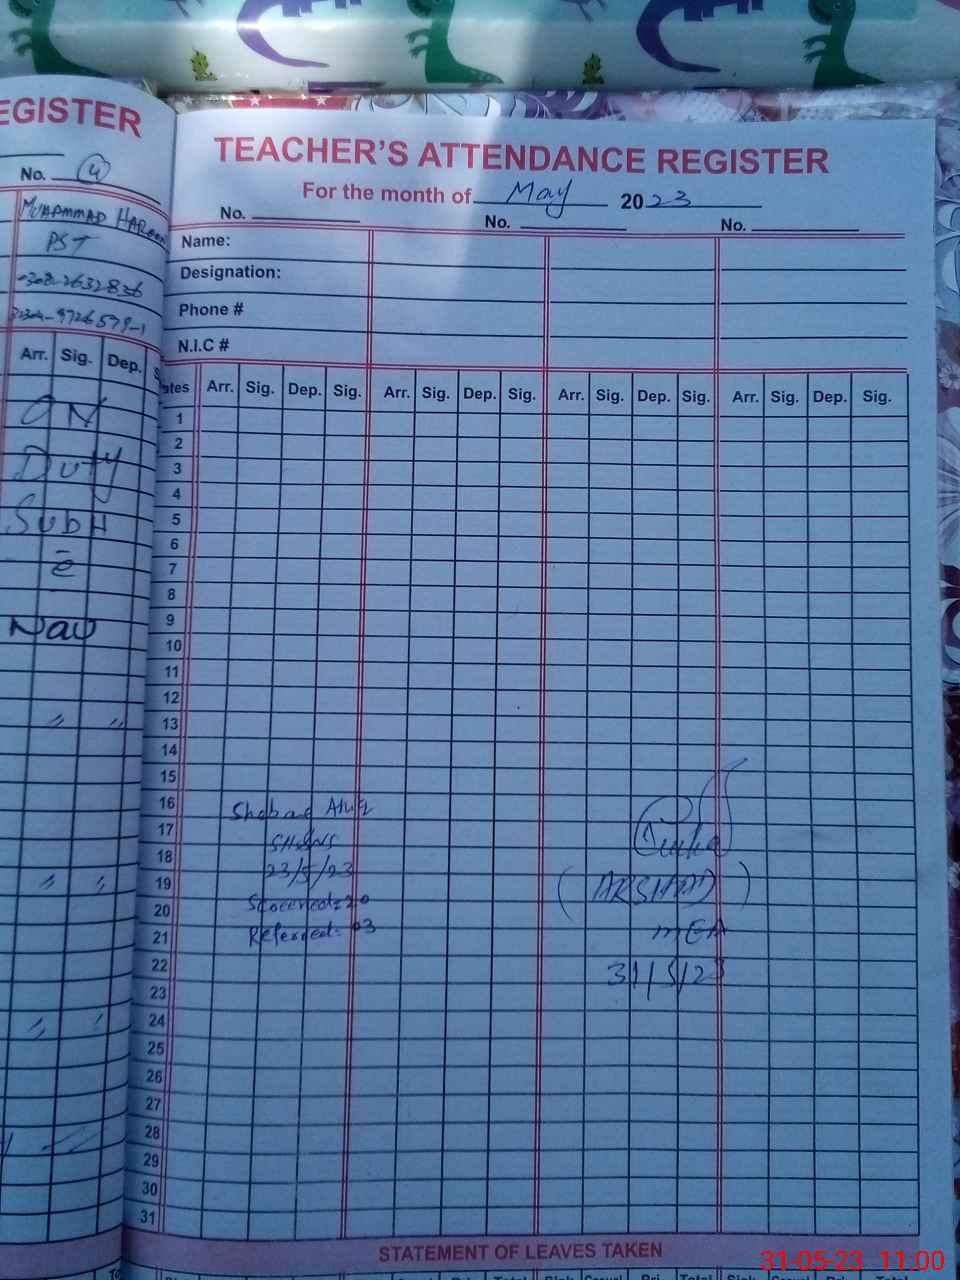 EGISTER
No. 4
MUHAMMAD HAROON
PST
0308-2632836
Arr. Sig. Dep.
ON
Duty
SubH
e
Nao
TEACHER'S ATTENDANCE REGISTER
For the month of May 2023
No. No. No.
Name:
Designation:
Phone #
N.I.C #
ates Arr. Sig. Dep. Sig. Arr. Sig. Dep. Sig. Arr. Sig. Dep. Sig. Arr. Sig. Dep. Sig.
1
2
3
4
5
6
7
8
9
10
11
12
13
14
15
16
17
18
19
20
21
22
23
24
25
26
27
28
29
30
31
23/5/23
Screened=20
Referred=03
(ARSHAD)
MEA
31/5/23
STATEMENT OF LEAVES TAKEN
31-05-23 11:00